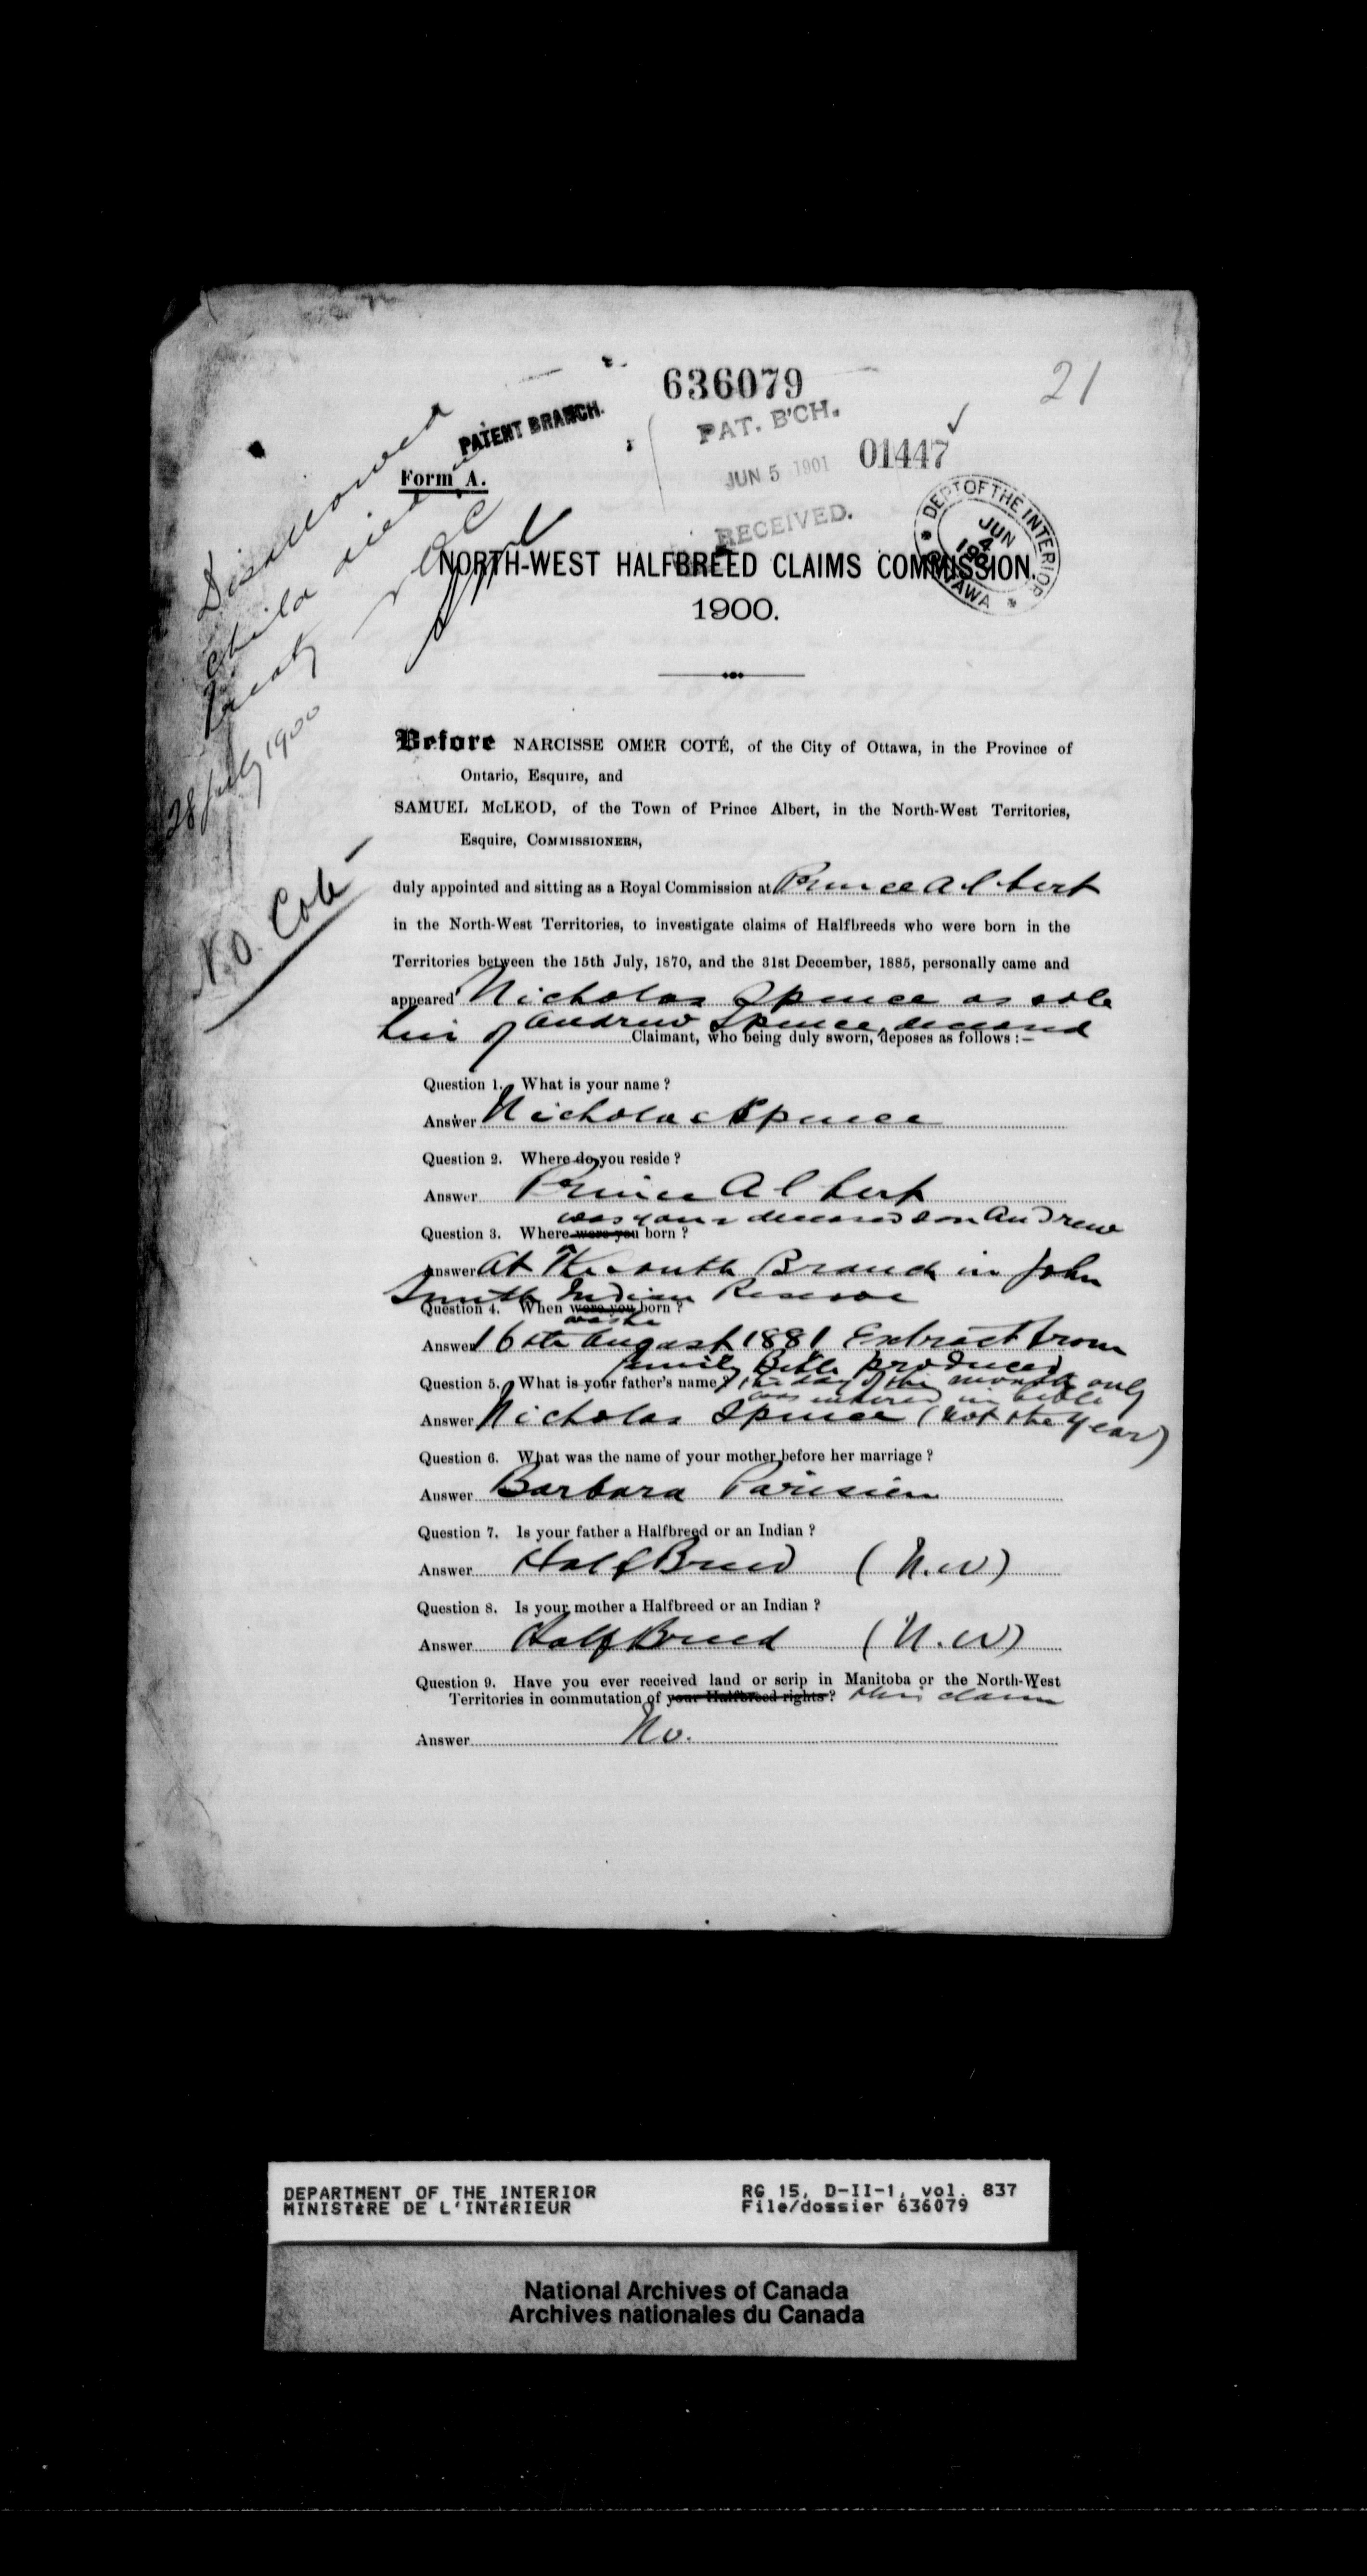 636079
21
PATENT BRANCH.
PAT. B'CH.
01447
JUN 5 1901
RECEIVED.
Form A.
DEPT OF THE INTERIOR
JUN
4
OTTAWA
Disallowed
child died in
treaty
NOC
28 July 1900
N.O. Coté
NORTH-WEST HALFBREED CLAIMS COMMISSION.
1900.
Before NARCISSE OMER COTÉ, of the City of Ottawa, in the Province of
Ontario, Esquire, and
SAMUEL McLEOD, of the Town of Prince Albert, in the North-West Territories,
Esquire, COMMISSIONERS,
duly appointed and sitting as a Royal Commission at Prince Albert
in the North-West Territories, to investigate claims of Halfbreeds who were born in the
Territories between the 15th July, 1870, and the 31st December, 1885, personally came and
appeared Nicholas Spence as sole
heir of Andrew Spence, deceased
Claimant, who being duly sworn, deposes as follows:—
Question 1. What is your name?
Answer Nicholas Spence
Question 2. Where do you reside?
Answer Prince Albert
was your deceased son Andrew
Question 3. Where were you born?
Answer At the South Branch in John
Smith Indian Reserve
Question 4. When were you born?
was he
Answer 16th August 1881 Extract from
family Bible produced
Question 5. What is your father's name? the day of the month only
was entered in bible
Answer Nicholas Spence (not the year)
Question 6. What was the name of your mother before her marriage?
Answer Barbara Parisien
Question 7. Is your father a Halfbreed or an Indian?
Answer HalfBreed (N.W)
Question 8. Is your mother a Halfbreed or an Indian?
Answer HalfBreed (N.W)
Question 9. Have you ever received land or scrip in Manitoba or the North-West
Territories in commutation of your Halfbreed rights? this claim
Answer No.
DEPARTMENT OF THE INTERIOR
MINISTÈRE DE L'INTÉRIEUR
RG 15, D-II-1, vol. 837
File/dossier 636079
National Archives of Canada
Archives nationales du Canada